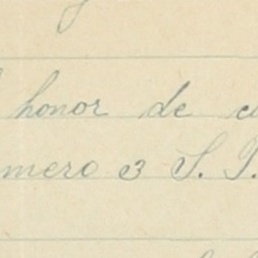 honor de
mero 3 S.